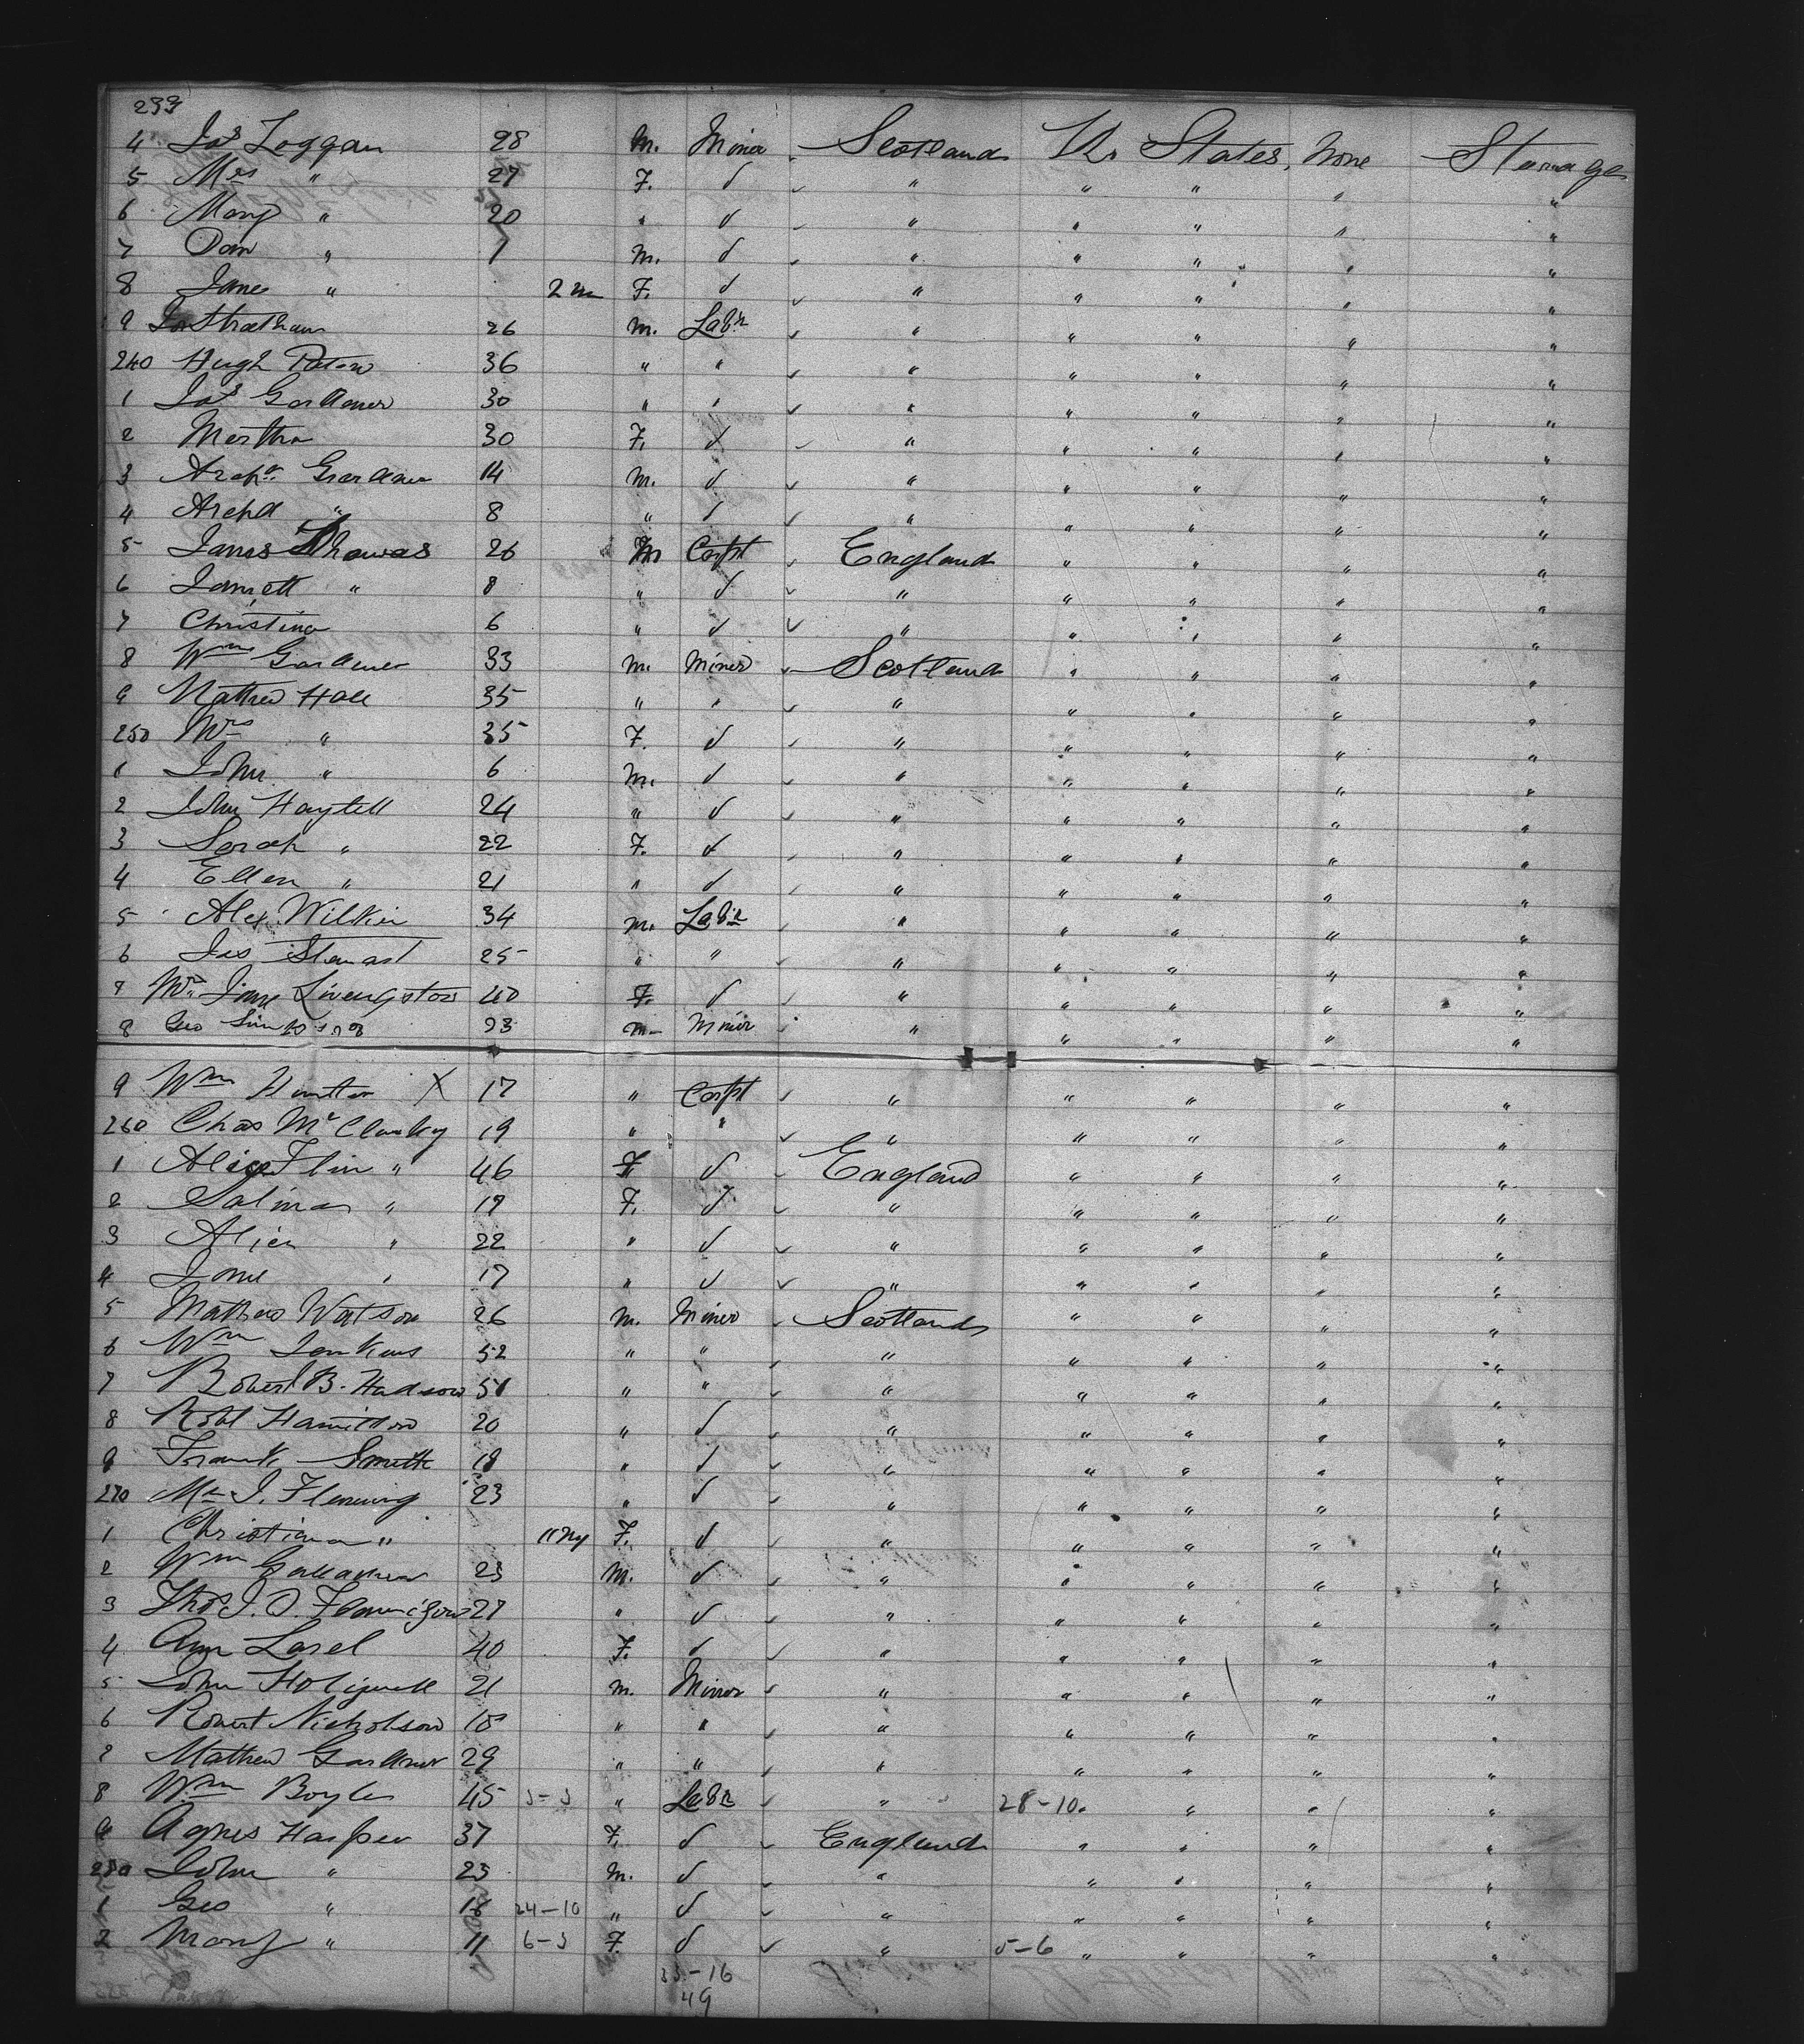 233
4 Jas Loggan 28 M. Miner Scotland U. States, None Steerage
5 Mrs " 27 F. " " " " "
6 Mary " 20 " " " " " "
7 Dan " 7 M. " " " " "
8 Jane " 2 m F. " " " " "
9 Jas Strathan 26 M. Labr " " " " "
240 Hugh Paton 36 " " " " " " "
1 Jas Gardener 30 " " " " " " "
2 Martha 30 F. " " " " "
3 Archd Gardner 14 M. " " " " "
4 Archd " 8 " " " " " "
5 James Thomas 26 M Carpt England " " " "
6 Jannett " 8 " " " " " "
7 Christina 6 " " " " " "
8 Wm Gardener 33 M. Miner Scotland " " " "
9 Mathew Hall 35 " " " " " " "
250 Mrs " 35 F. " " " " "
1 John " 6 M. " " " " "
2 John Haytell 24 " " " " " "
3 Sarah " 22 F. " " " " "
4 Ellen " 21 " " " " " "
5 Alex. Wilkie 34 M. Labr " " " " "
6 Jas Stewart 25 " " " " " " "
7 Mrs Jane Livengston 40 F. " " " " "
8 Geo Simpson 23 M Miner " " " " "
9 Wm Hunter X 17 " Carpt " " " " "
260 Chas McClusky 19 " " " " " " "
1 Alice Flin " 46 F England " " " "
2 Salina " 17 F. " " " " "
3 Alice " 22 " " " " " "
4 Jane " 17 " " " " " "
5 Mathew Watson 26 M. Miner Scotland " " " "
6 Wm Jenkins 52 " " " " " " "
7 Robert B. Hudson 51 " " " " " " "
8 Robt Hamilton 20 " " " " " "
9 Frank Smith 18 " " " " " "
270 Mr J. Fleming 23 " " " " " "
1 Christina " 11 my F. " " " " "
2 Wm Gallacher 23 M. " " " " "
3 Thos J. O. 27 " " " " " "
4 Ann Lasel 40 F. " " " " "
5 John Holiwell 21 M. Miner " " " " "
6 Robert Nicholson 18 " " " " " " "
7 Mathew Gardner 29 " " " " " " "
8 Wm Boyle 45 3-3 " Labr " 28-10 " " "
9 Agnes Harper 37 F. England " " " "
280 John " 23 M. " " " " "
1 Geo " 18 24-10 " " " " " "
2 Mary " 11 6-3 F. " 5-6 " " " "
33-16
49